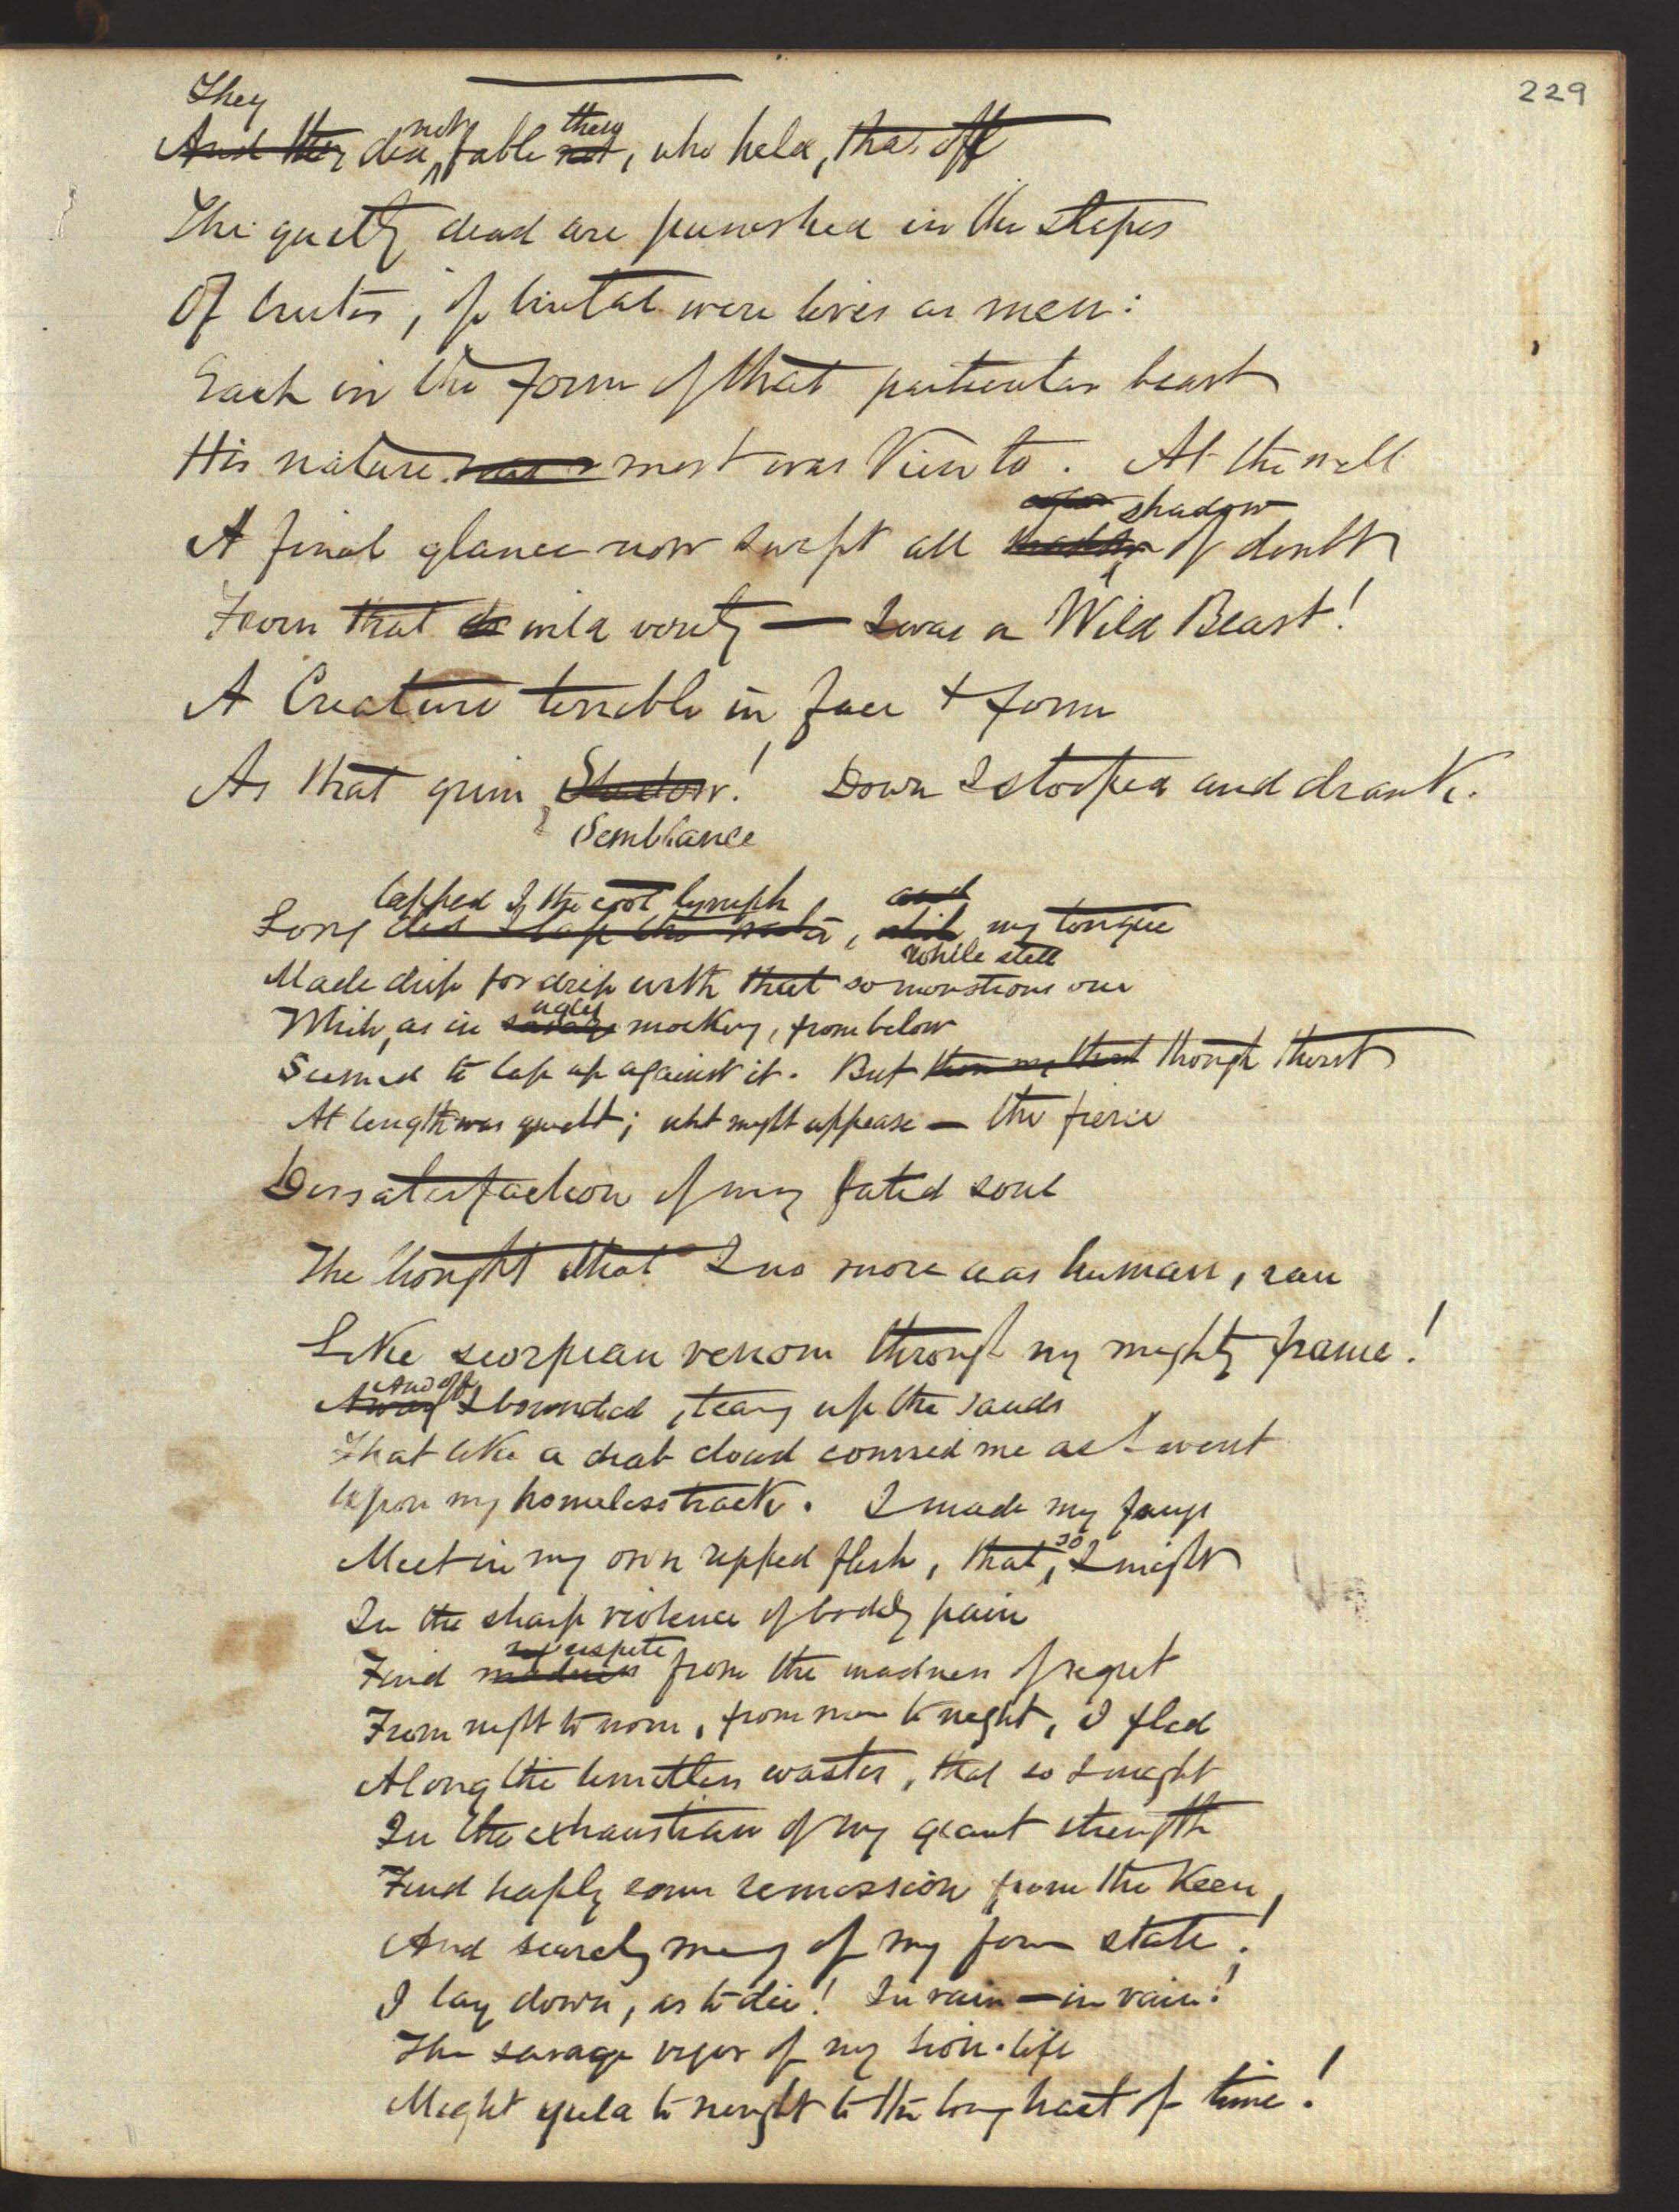 229
They
And they did not fable not them, who held, that oft
The guilty dead are punished in the shapes
Of brutes, if brutal were lives as men:
Each in the form of that particular beast
His nature was most was Kien to. At the well
A final glance now swept all shadow of doubt
From that wild verity — I was a Wild Beast!
A Creature terrible in face + form
As that grim Shadow! Down I stooped and drank.
Semblance
lapped I the cool lymph, and
Long did I lap the water, while my tongue
while still
Made drip for drip with that so monstrous one
ugly
Which, as in savage mockery, from below
Seemed to lap up against it. But then my thirst though thirst
At length was quelt; what might appease — the fierce
Dissatisfaction of my fated soul
The thought that I no more was human, ran
Like scorpian venom through my mighty frame!
And off
Away I bounded, tearing up the sands
That like a drab cloud covered me as I went
Upon my homeless track. I made my fangs
Meet in my own ripped flesh, that, so I might
In the sharp violence of bodily pain
respite
Find madness from the madness of regret
From night to morn, from morn to night, I fled
Along the limitless wastes, that so I might
In the exhaustian of my giant strength
Find haply some remission from the Keen,
And searching memory of my former state!
I lay down, as to die! In vain — in vain!
The savage vigor of my lion-life
Might yield to nought to the long haet of time!